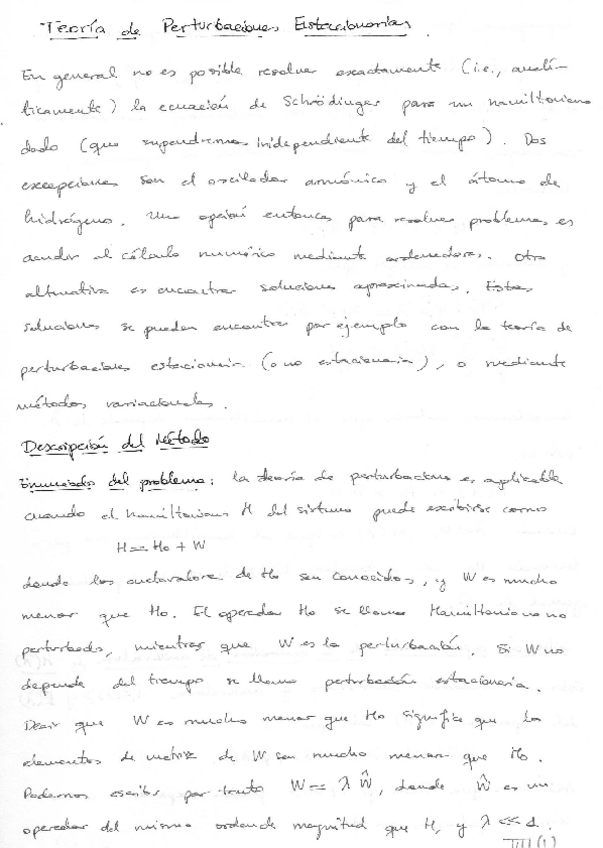 Teoría de Perturbaciones Estacionarias
En general no es posible resolver exactamente (i.e., analí-
ticamente) la ecuación de Schrödinger para un hamiltoniano
dado (que supondremos independiente del tiempo). Dos
excepciones son el oscilador armónico y el átomo de
hidrógeno. Una opción entonces para resolver problemas es
acudir al cálculo numérico mediante ordenadores. Otra
alternativa es encontrar soluciones aproximadas. Estas
soluciones se pueden encontrar por ejemplo con la teoría de
perturbaciones estacionaria (o no estacionaria), o mediante
métodos variacionales.
Descripción del Método
Enunciado del problema: la teoría de perturbaciones es aplicable
cuando el hamiltoniano H del sistema puede escribirse como
H = Ho + W
donde los autovalores de Ho son conocidos, y W es mucho
menor que Ho. El operador Ho se llama Hamiltoniano no
perturbado, mientras que W es la perturbación. Si W no
depende del tiempo se llama perturbación estacionaria.
Decir que W es mucho menor que Ho significa que los
elementos de matriz de W son mucho menor que Ho.
Podemos escribir por tanto W = λ Ŵ, donde Ŵ es un
operador del mismo orden de magnitud que H, y λ << 1.
III (1)